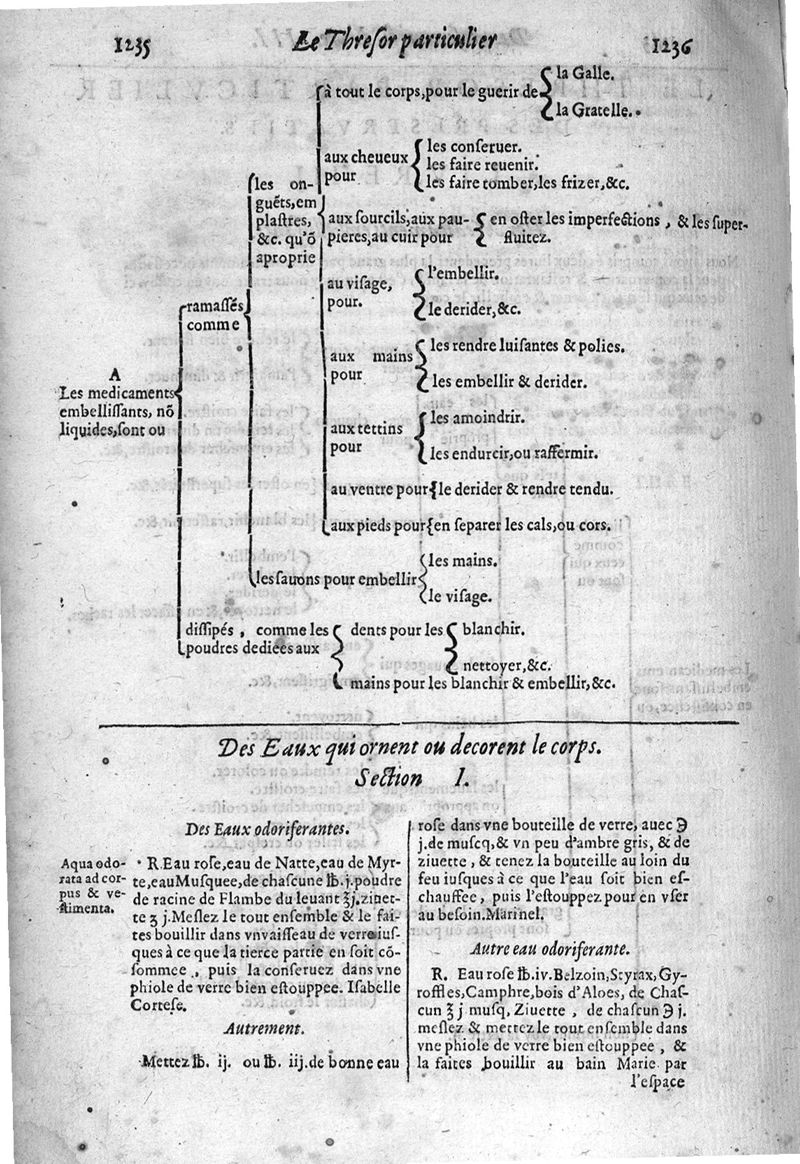 1235 Le Threſor particulier 1236
à tout le corps, pour le guerir de
la Galle.
la Gratelle.
les on-
guẽts, em
plaſtres,
&c. qu'õ
aproprie
aux cheueux
pour
les conſeruer.
les faire reuenir.
les faire tomber, les frizer, &c.
aux ſourcils, aux pau-
pieres, au cuir pour
en oſter les imperfections, & les ſuper-
fluitez.
au viſage,
pour.
l'embellir.
le derider, &c.
ramaſſés
comme
aux mains
pour
les rendre luiſantes & polies.
les embellir & derider.
A
Les medicaments
embelliſſants, nõ
liquides, ſont ou
aux tettins
pour
les amoindrir.
les endurcir, ou raffermir.
au ventre pour le derider & rendre tendu.
aux pieds pour en ſeparer les cals, ou cors.
les ſauons pour embellir
les mains.
le viſage.
diſſipés, comme les
poudres dediees aux
dents pour les
blanchir.
nettoyer, &c.
mains pour les blanchir & embellir, &c.
Des Eaux qui ornent ou decorent le corps.
Section I.
Des Eaux odoriferantes.
Aqua odo-
rata ad cor-
pus & ve-
ſtimenta.
* R. Eau roſe, eau de Natte, eau de Myr-
te, eau Muſquee, de chaſcune ℔. j. poudre
de racine de Flambe du leuant ℥j. zinet-
te ʒ j. Meſlez le tout enſemble & le fai-
tes bouillir dans vn vaiſſeau de verre iuſ-
ques à ce que la tierce partie en ſoit cõ-
ſommee, puis la conſeruez dans vne
phiole de verre bien eſtouppee. Iſabelle
Corteſe.
Autrement.
Mettez ℔. ij. ou ℔. iij. de bonne eau
roſe dans vne bouteille de verre, auec ℈
j. de muſcq, & vn peu d'ambre gris, & de
ziuette, & tenez la bouteille au loin du
feu iuſques à ce que l'eau ſoit bien eſ-
chauffee, puis l'eſtouppez pour en vſer
au beſoin. Marinel.
Autre eau odoriferante.
R. Eau roſe ℔. iv. Belzoin, Styrax, Gy-
roffles, Camphre, bois d'Aloes, de Chaſ-
cun ʒ j muſq, Ziuette, de chaſcun ℈ j.
meſlez & mettez le tout enſemble dans
vne phiole de verre bien eſtouppee, &
la faites bouillir au bain Marie par
l'eſpace